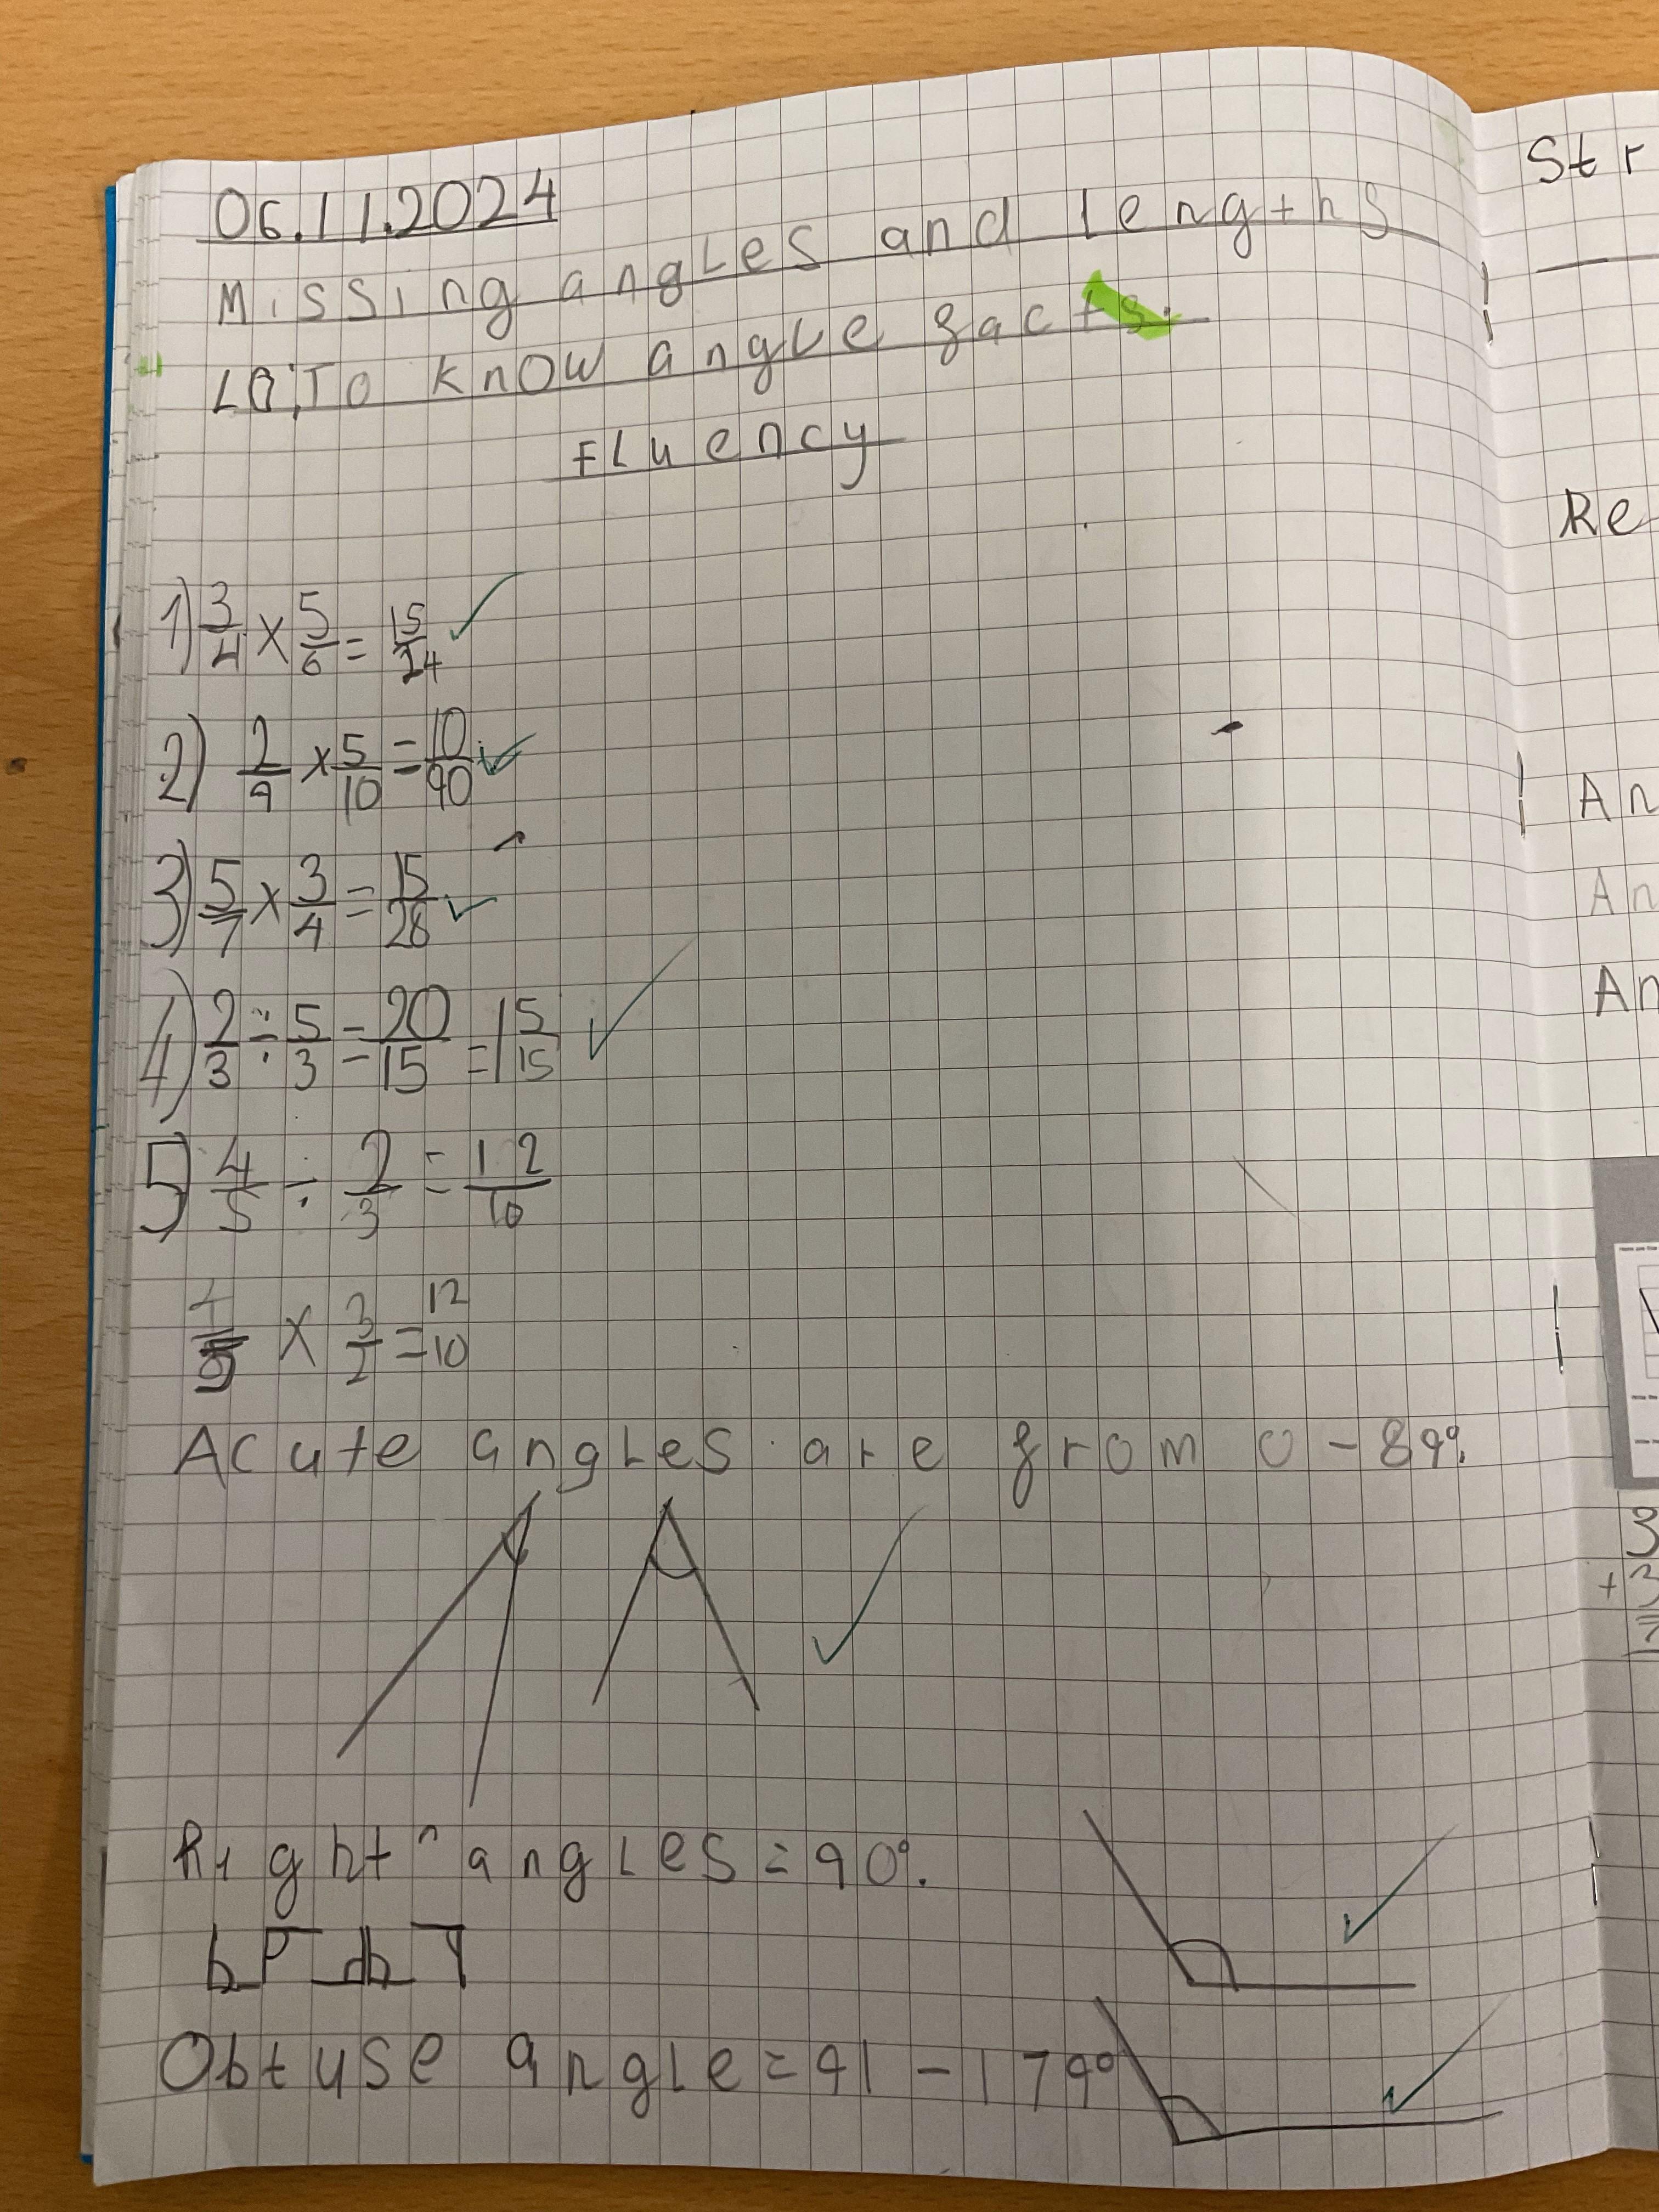 06.11.2024
Missing angles and lengths
LO; To know angle facts.
Fluency
1) 3/4 × 5/6 = 15/24
2) 2/9 × 5/10 = 10/90
3) 5/7 × 3/4 = 15/28
4) 2/3 ÷ 5/3 = 20/15 = 1 5/15
5) 4/5 ÷ 2/3 = 12/10
4/5 × 3/2 = 12/10
Acute angles are from 0-89°.
Right angles = 90°.
Obtuse angle = 91-179°
Str
Re
An
An
An
3